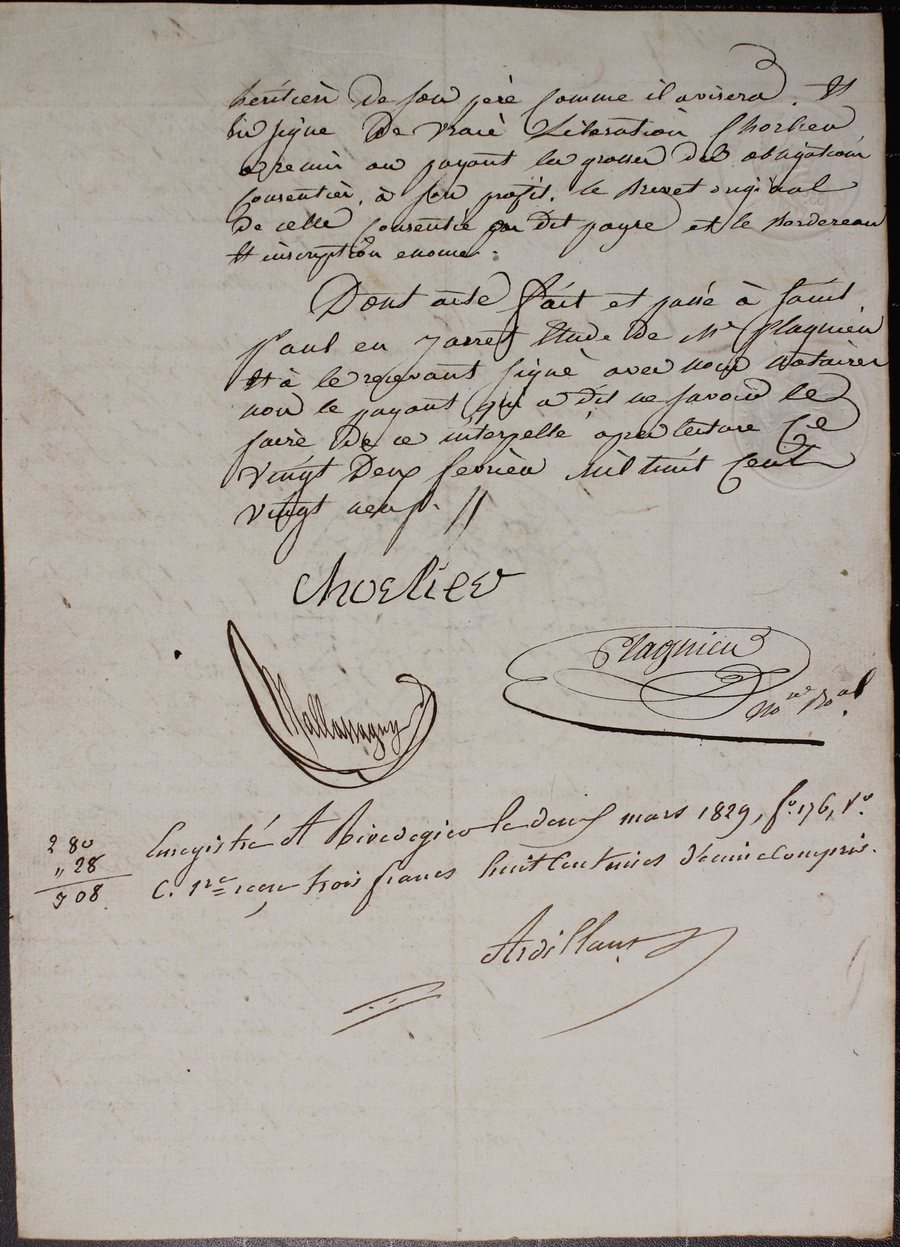 heritier de son pere comme il avisera. Et
en signe de vraie Liberation Chorlieu
a remis au payant les grosses des obligations
consenties, à son profit, le brevet original
de celle consentie par dit payre et le bordereau
et inscription enoncé.
Dont acte fait et passé à Saint
Paul en Jarret Etude de Me Plagnieu
Et à le recevant signé avec nous notaires
non le payant qui a dit ne savoir le
faire de ce interpellé apres lecture Ce
vingt Deux fevrier mil huit Cent
vingt neuf. //
Chorlieu
Plagnieu
Nore Roal.
Mallassagny
280
" 28
3 08
Enregistré At Rivedegier le deux mars 1829, fo. 176, Vo.
C. 1re reçu trois francs huit Centimes decime compris.
Ardillaux